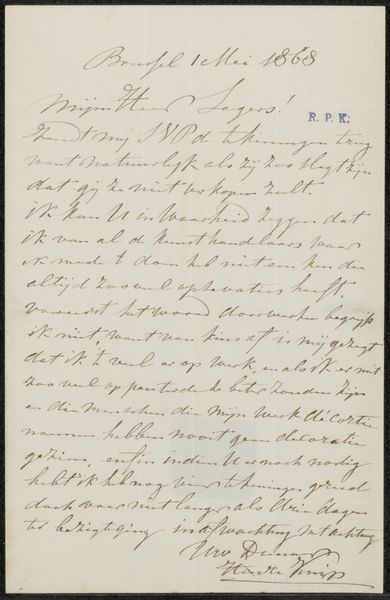 Brussel 1 Mei 1868
Mijn Heer Segers!
R. P. K.
Zendt mij SVP de tekeningen terug
want natuurlijk als zij zoo slegt zijn
dat gij ze niet verkopen zult.
ik kan U in Waarheid zeggen dat
ik van al de kunsthandelaars waar
ik mede te doen heb niet een ken die
altijd zoo veel opservaties heeft
vooreerst het woord doorwerken begrijp
ik niet, want van kins af is mij gezegt
dat ik te veel er op werk, en als ik er niet
zoo veel op penterde ze beter zouden zijn
en die menschen die mijn werk décoratie
noemen hebben nooit geen decoratie
gezien, enfin indien U er noch nodig
hebt ik heb nog vier tekeningen gereed
doch voor niet langer als drie dagen
ter bezigtiging in afwachting met achting
Uw Dienaar